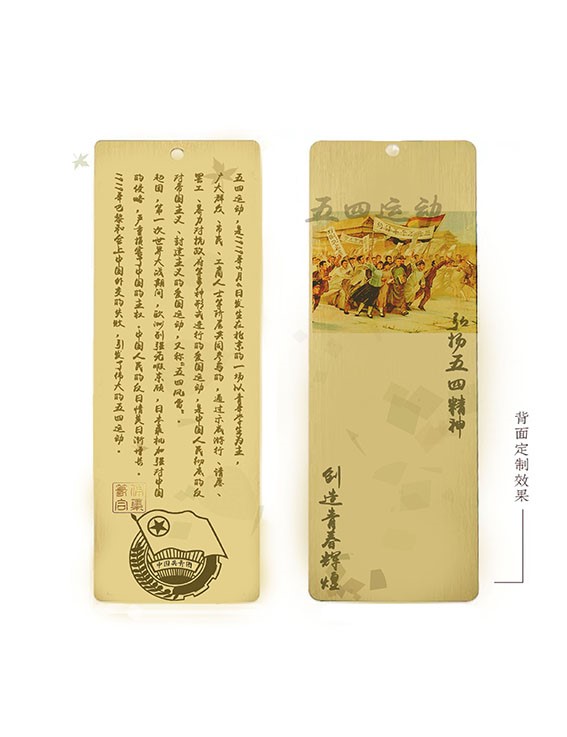 五四运动，是一九一九年五月四日发生在北京的一场以青年学生为主，
广大群众、市民、工商人士等阶层共同参与的，通过示威游行、请愿、
罢工、暴力对抗政府等多种形式进行的爱国运动，是中国人民彻底的反
对帝国主义、封建主义的爱国运动，又称“五四风雷”。
起因，第一次世界大战期间，欧洲列强无暇东顾，日本乘机加强对中国
的侵略，严重损害了中国的主权。中国人民的反日情绪日渐增长。
一九一九年巴黎和会上中国外交的失败，引发了伟大的五四运动。
中国共青团
五四运动
弘扬五四精神
创造青春辉煌
背面定制效果